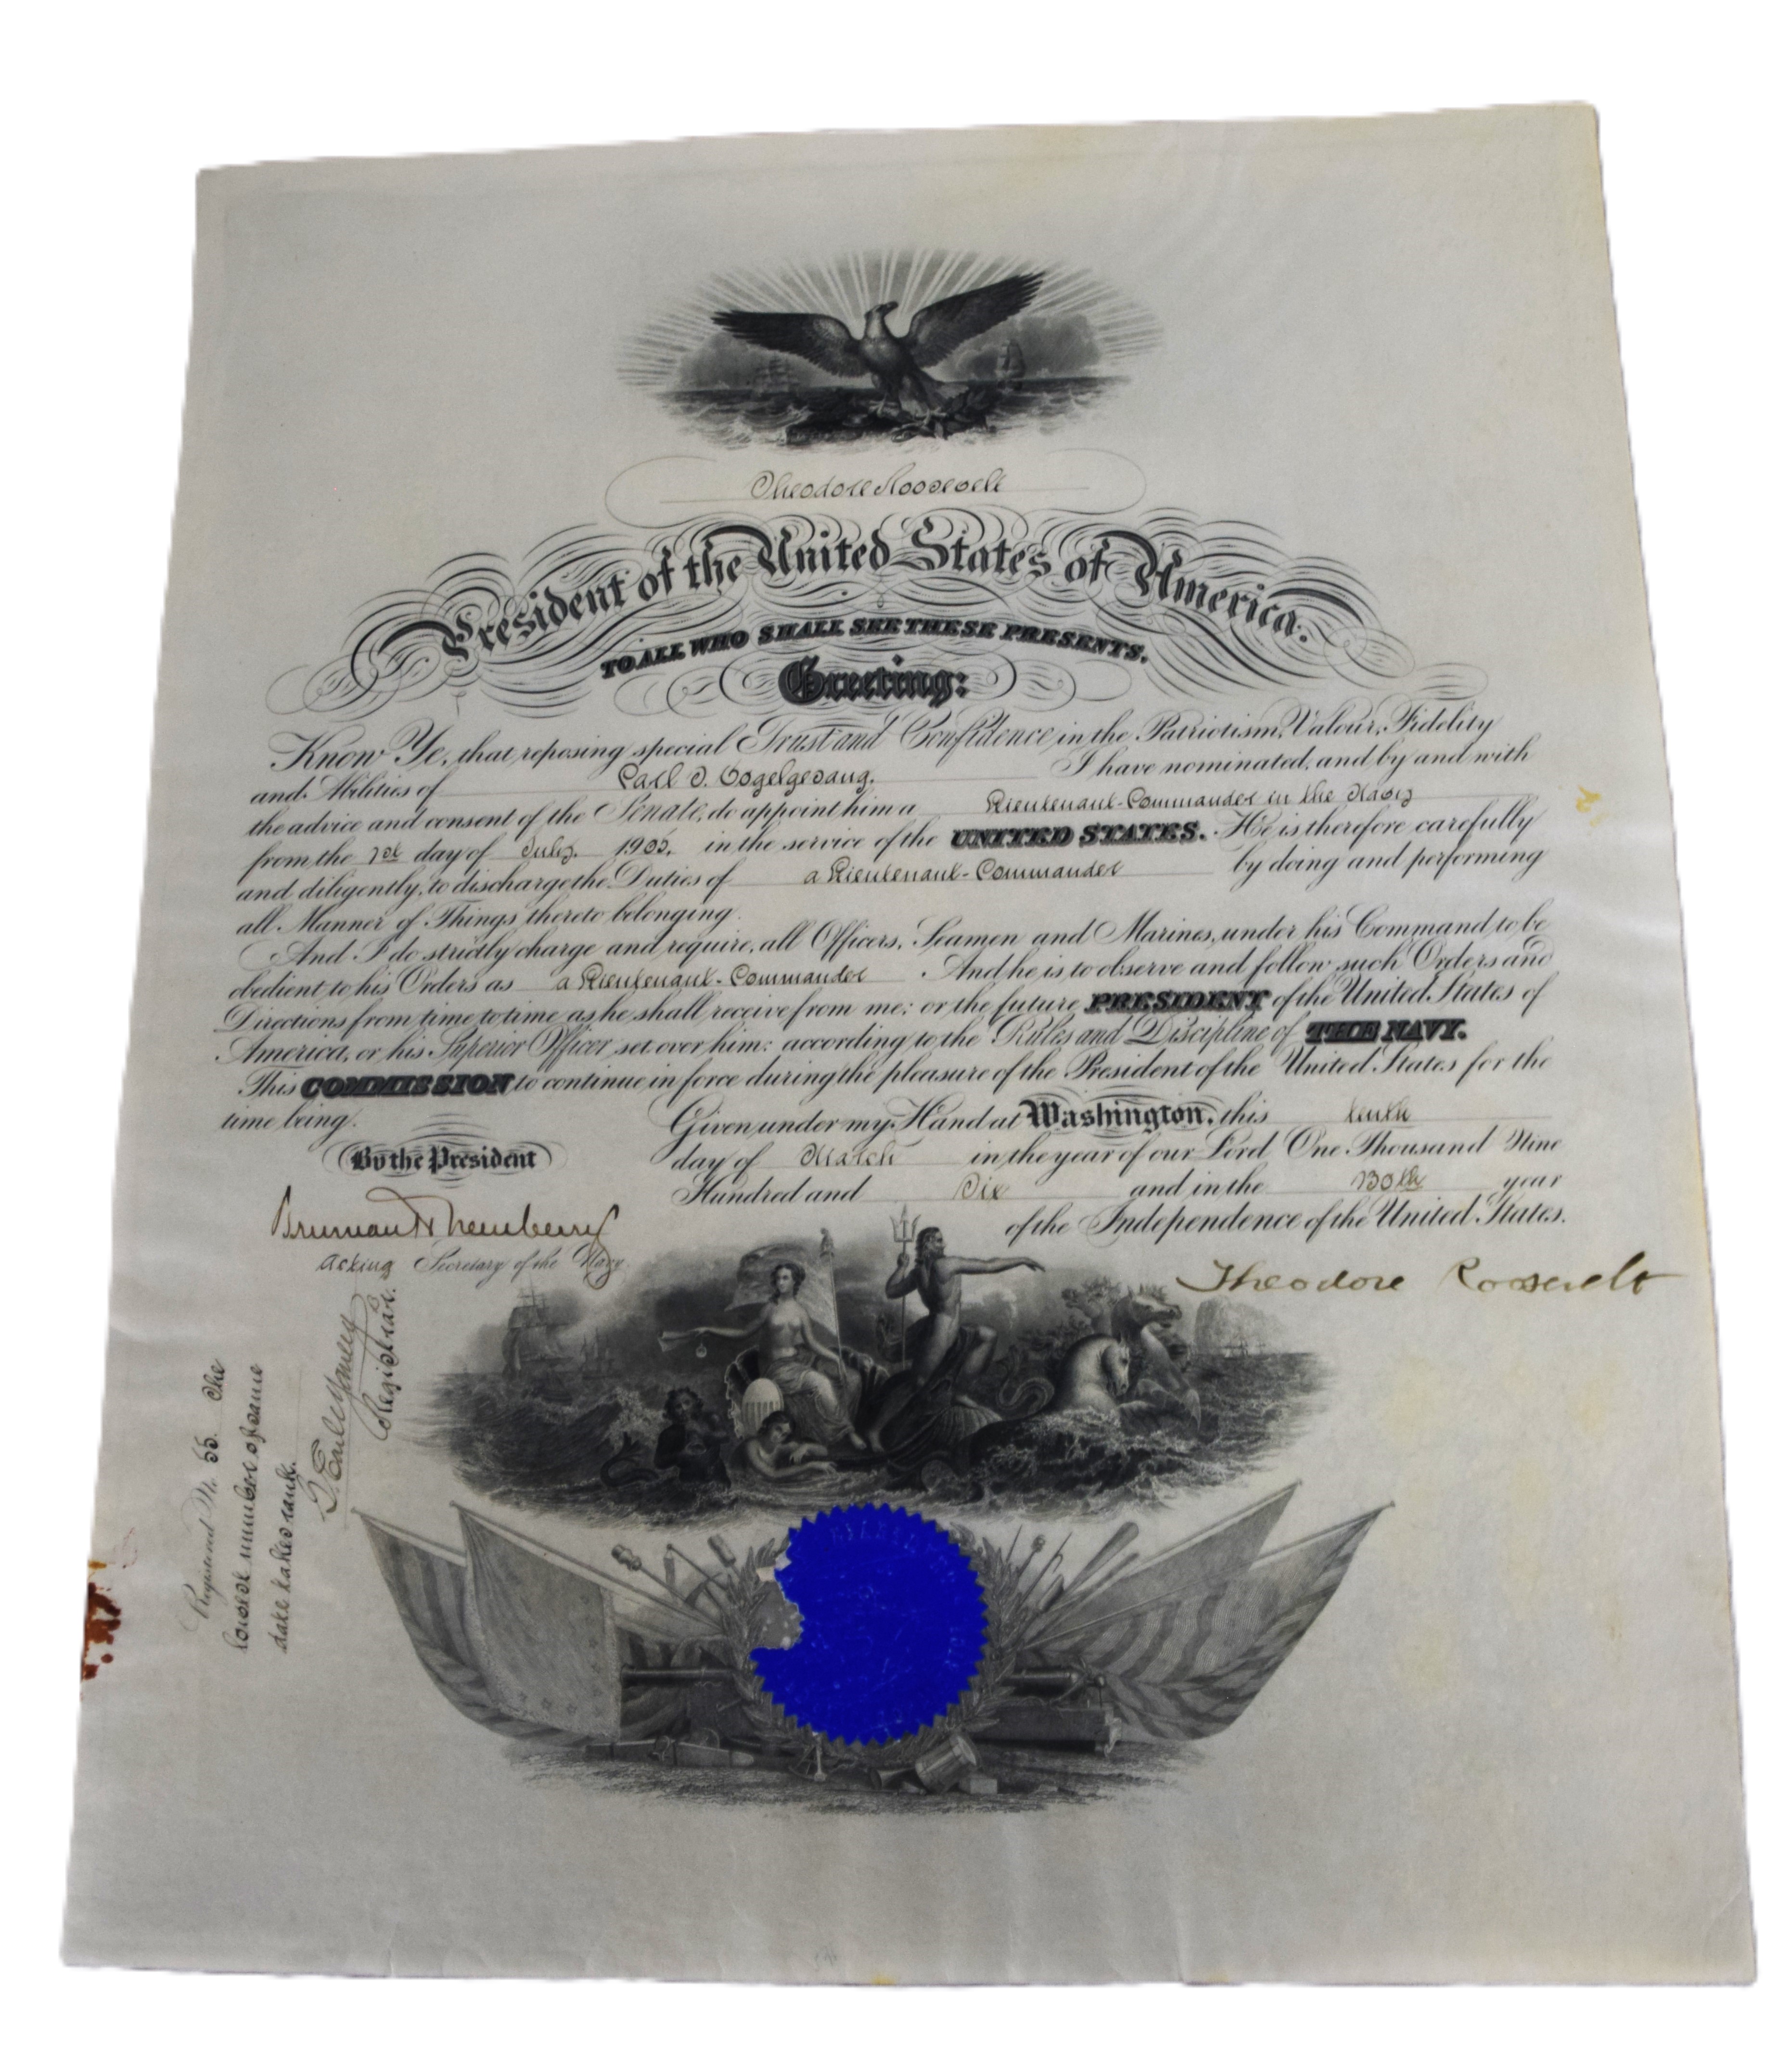 Theodore Roosevelt
President of the United States of America.
TO ALL WHO SHALL SEE THESE PRESENTS.
Greeting:
Know Ye, that reposing special Trust and Confidence in the Patriotism, Valour, Fidelity
and Abilities of Carl T. Vogelgesang. I have nominated, and by and with
the advice and consent of the Senate, do appoint him a Lieutenant-Commander in the Navy
from the 1st day of July, 1905, in the service of the UNITED STATES. He is therefore carefully
and diligently, to discharge the Duties of a Lieutenant-Commander by doing and performing
all Manner of Things thereto belonging.
And I do strictly charge and require, all Officers, Seamen and Marines, under his Command to be
obedient to his Orders as a Lieutenant-Commander. And he is to observe and follow such Orders and
Directions from time to time as he shall receive from me: or the future PRESIDENT of the United States of
America, or his Superior Officer set over him: according to the Rules and Discipline of THE NAVY.
This COMMISSION to continue in force during the pleasure of the President of the United States for the
time being.
Given under my Hand at Washington, this tenth
day of March in the year of our Lord One Thousand Nine
Hundred and Six and in the 130th year
of the Independence of the United States.
By the President
Truman H Newberry
Acting Secretary of the Navy
Theodore Roosevelt
Registered No. 55. The
lowest number of same
date takes rank.
Registrar.